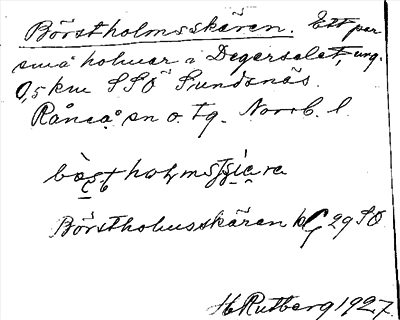 Börstholmsskären. Ett par
små holmar i Degerselet, ung.
0,5 km SSO Sundsnäs.
Råneå sn o. tg. Norrb. l.
Börstholmsskären kG 29 SO
H Rutberg 1927.